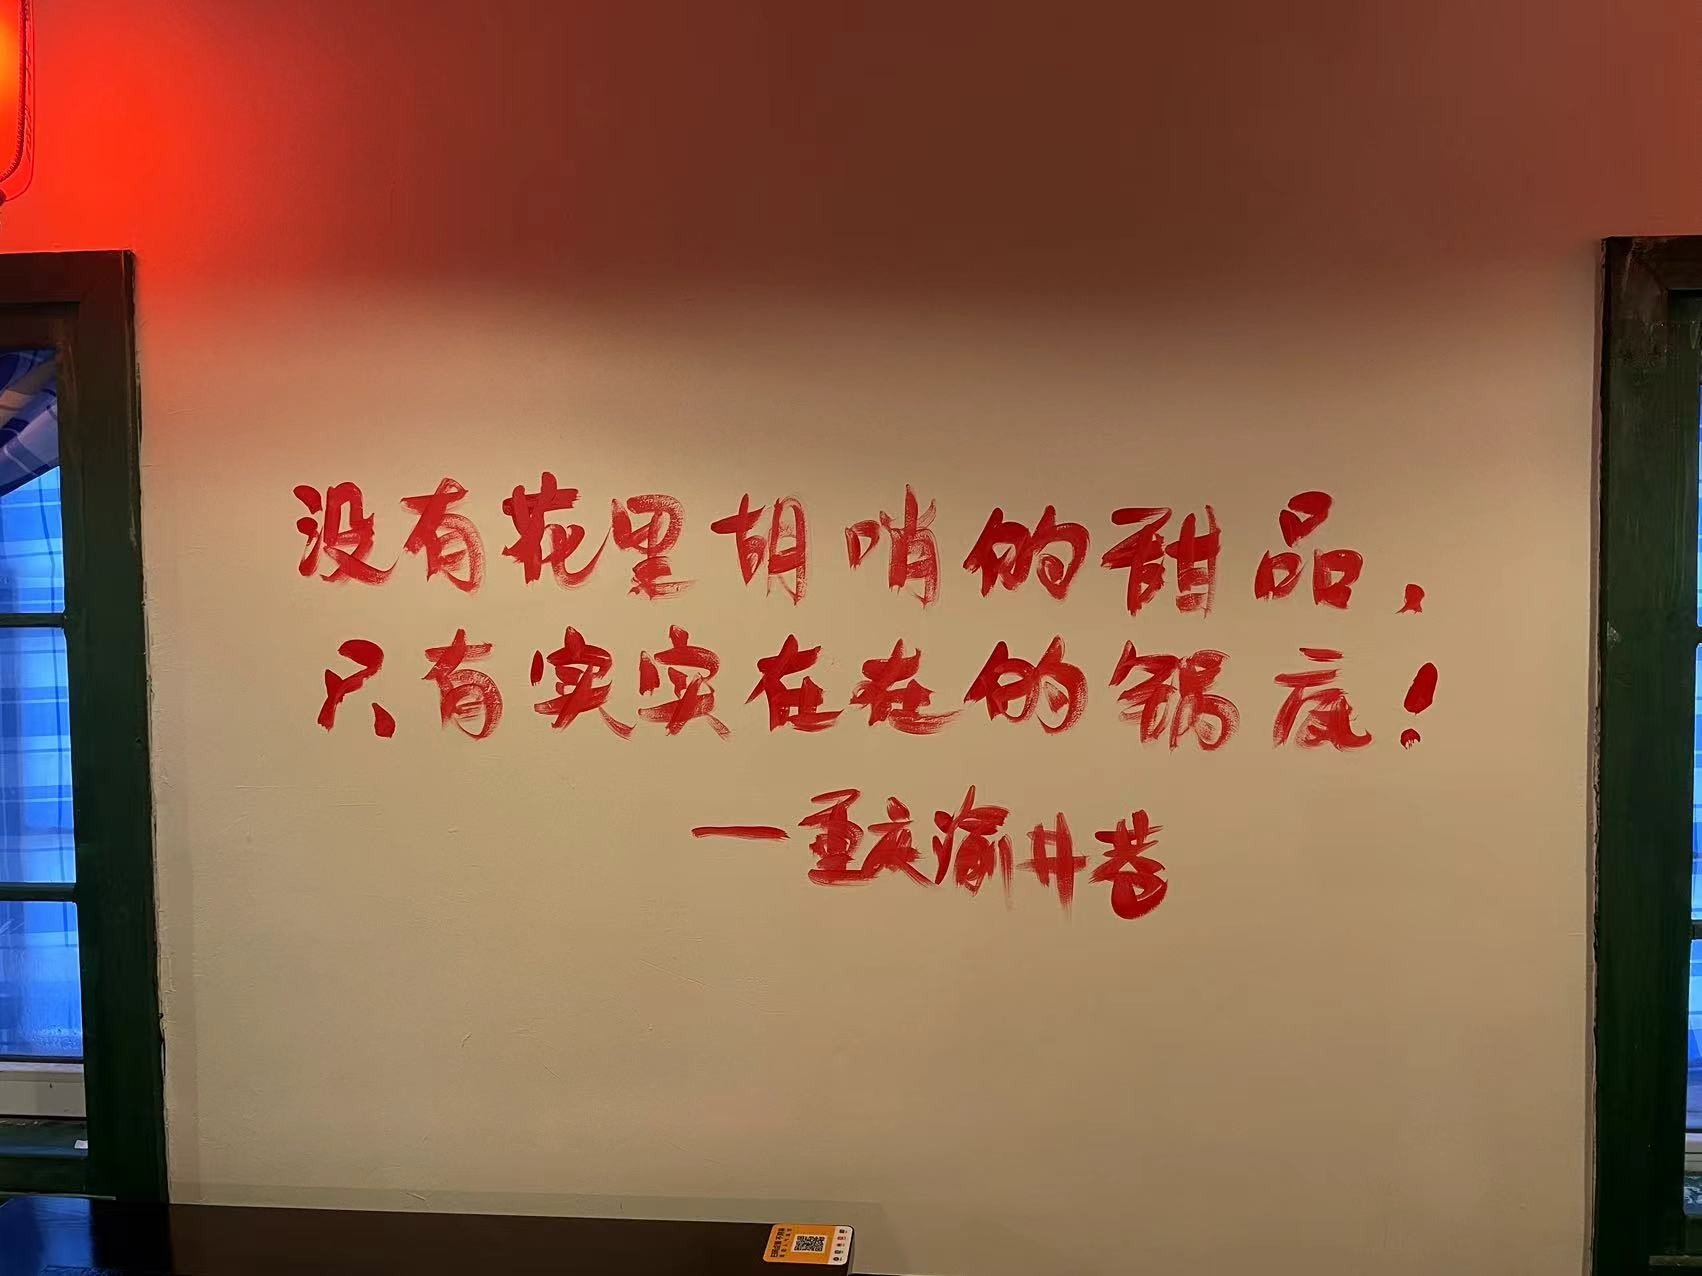 没有花里胡哨的甜品，
只有实实在在的锅底！
一重庆渝井巷